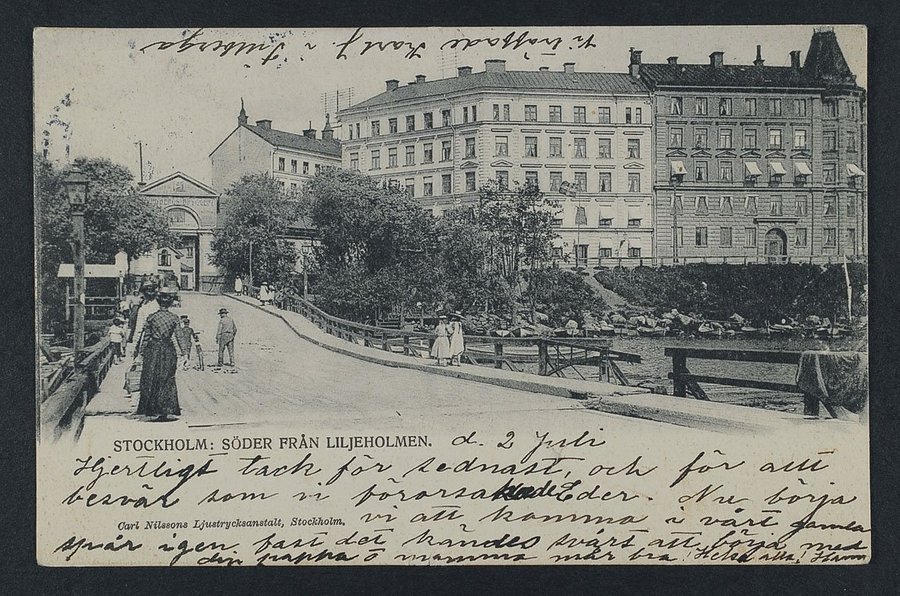 Vi träffade Karl J. i Tullberga
STOCKHOLM: SÖDER FRÅN LILJEHOLMEN. d. 2 Juli
Hjertligt tack för sednast, och för allt
besvär som vi förorsakade Eder. Nu börja
Carl Nilssons Ljustrycksanstalt, Stockholm. vi att komma i vårt gamla
spår igen, fast det kändes svårt att börja med
din pappa o mamma mår bra. Helsa alla,